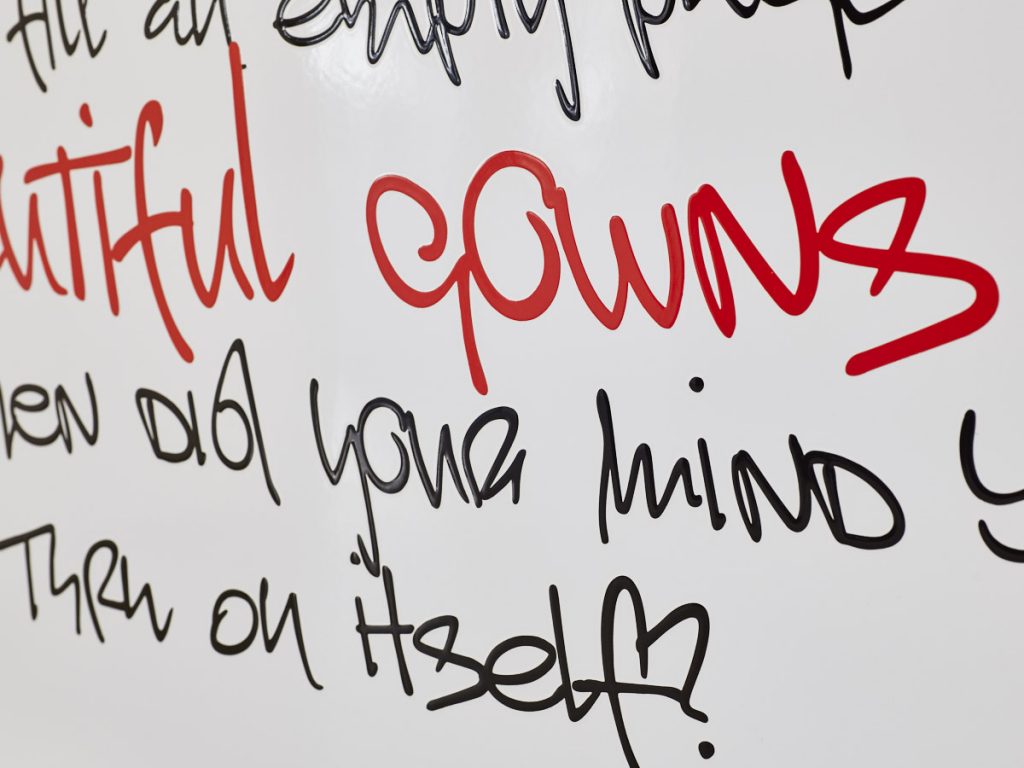 fill an empty
utiful gowns
en did your mind y
turn on itself?